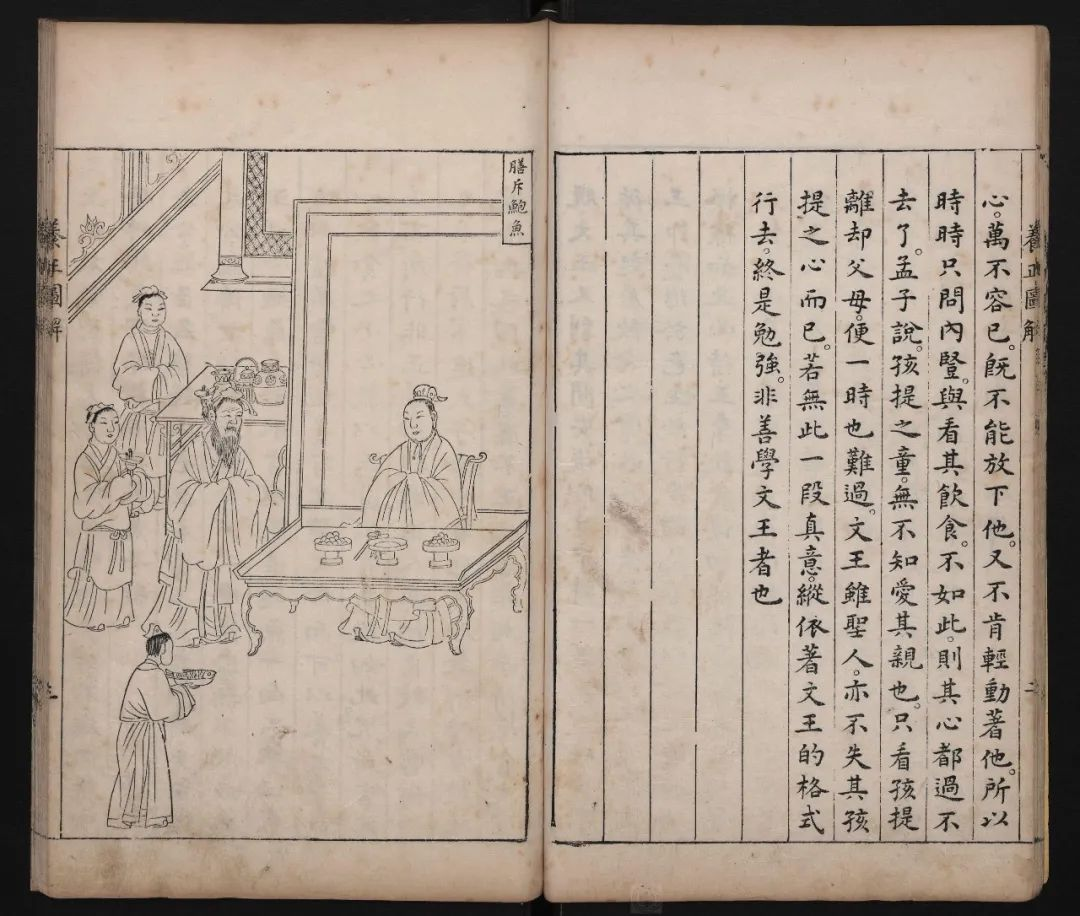 養正圖解
二
心。萬不容已。旣不能放下他。又不肯輕動著他。所以
時時只問內豎。與看其飲食。不如此。則其心都過不
去了。孟子說。孩提之童。無不知愛其親也。只看孩提
離却父母。便一時也難過。文王雖聖人。亦不失其孩
提之心而已。若無此一段真意。縱依著文王的格式
行去。終是勉強。非善學文王者也
膳斥鮑魚
養正圖解